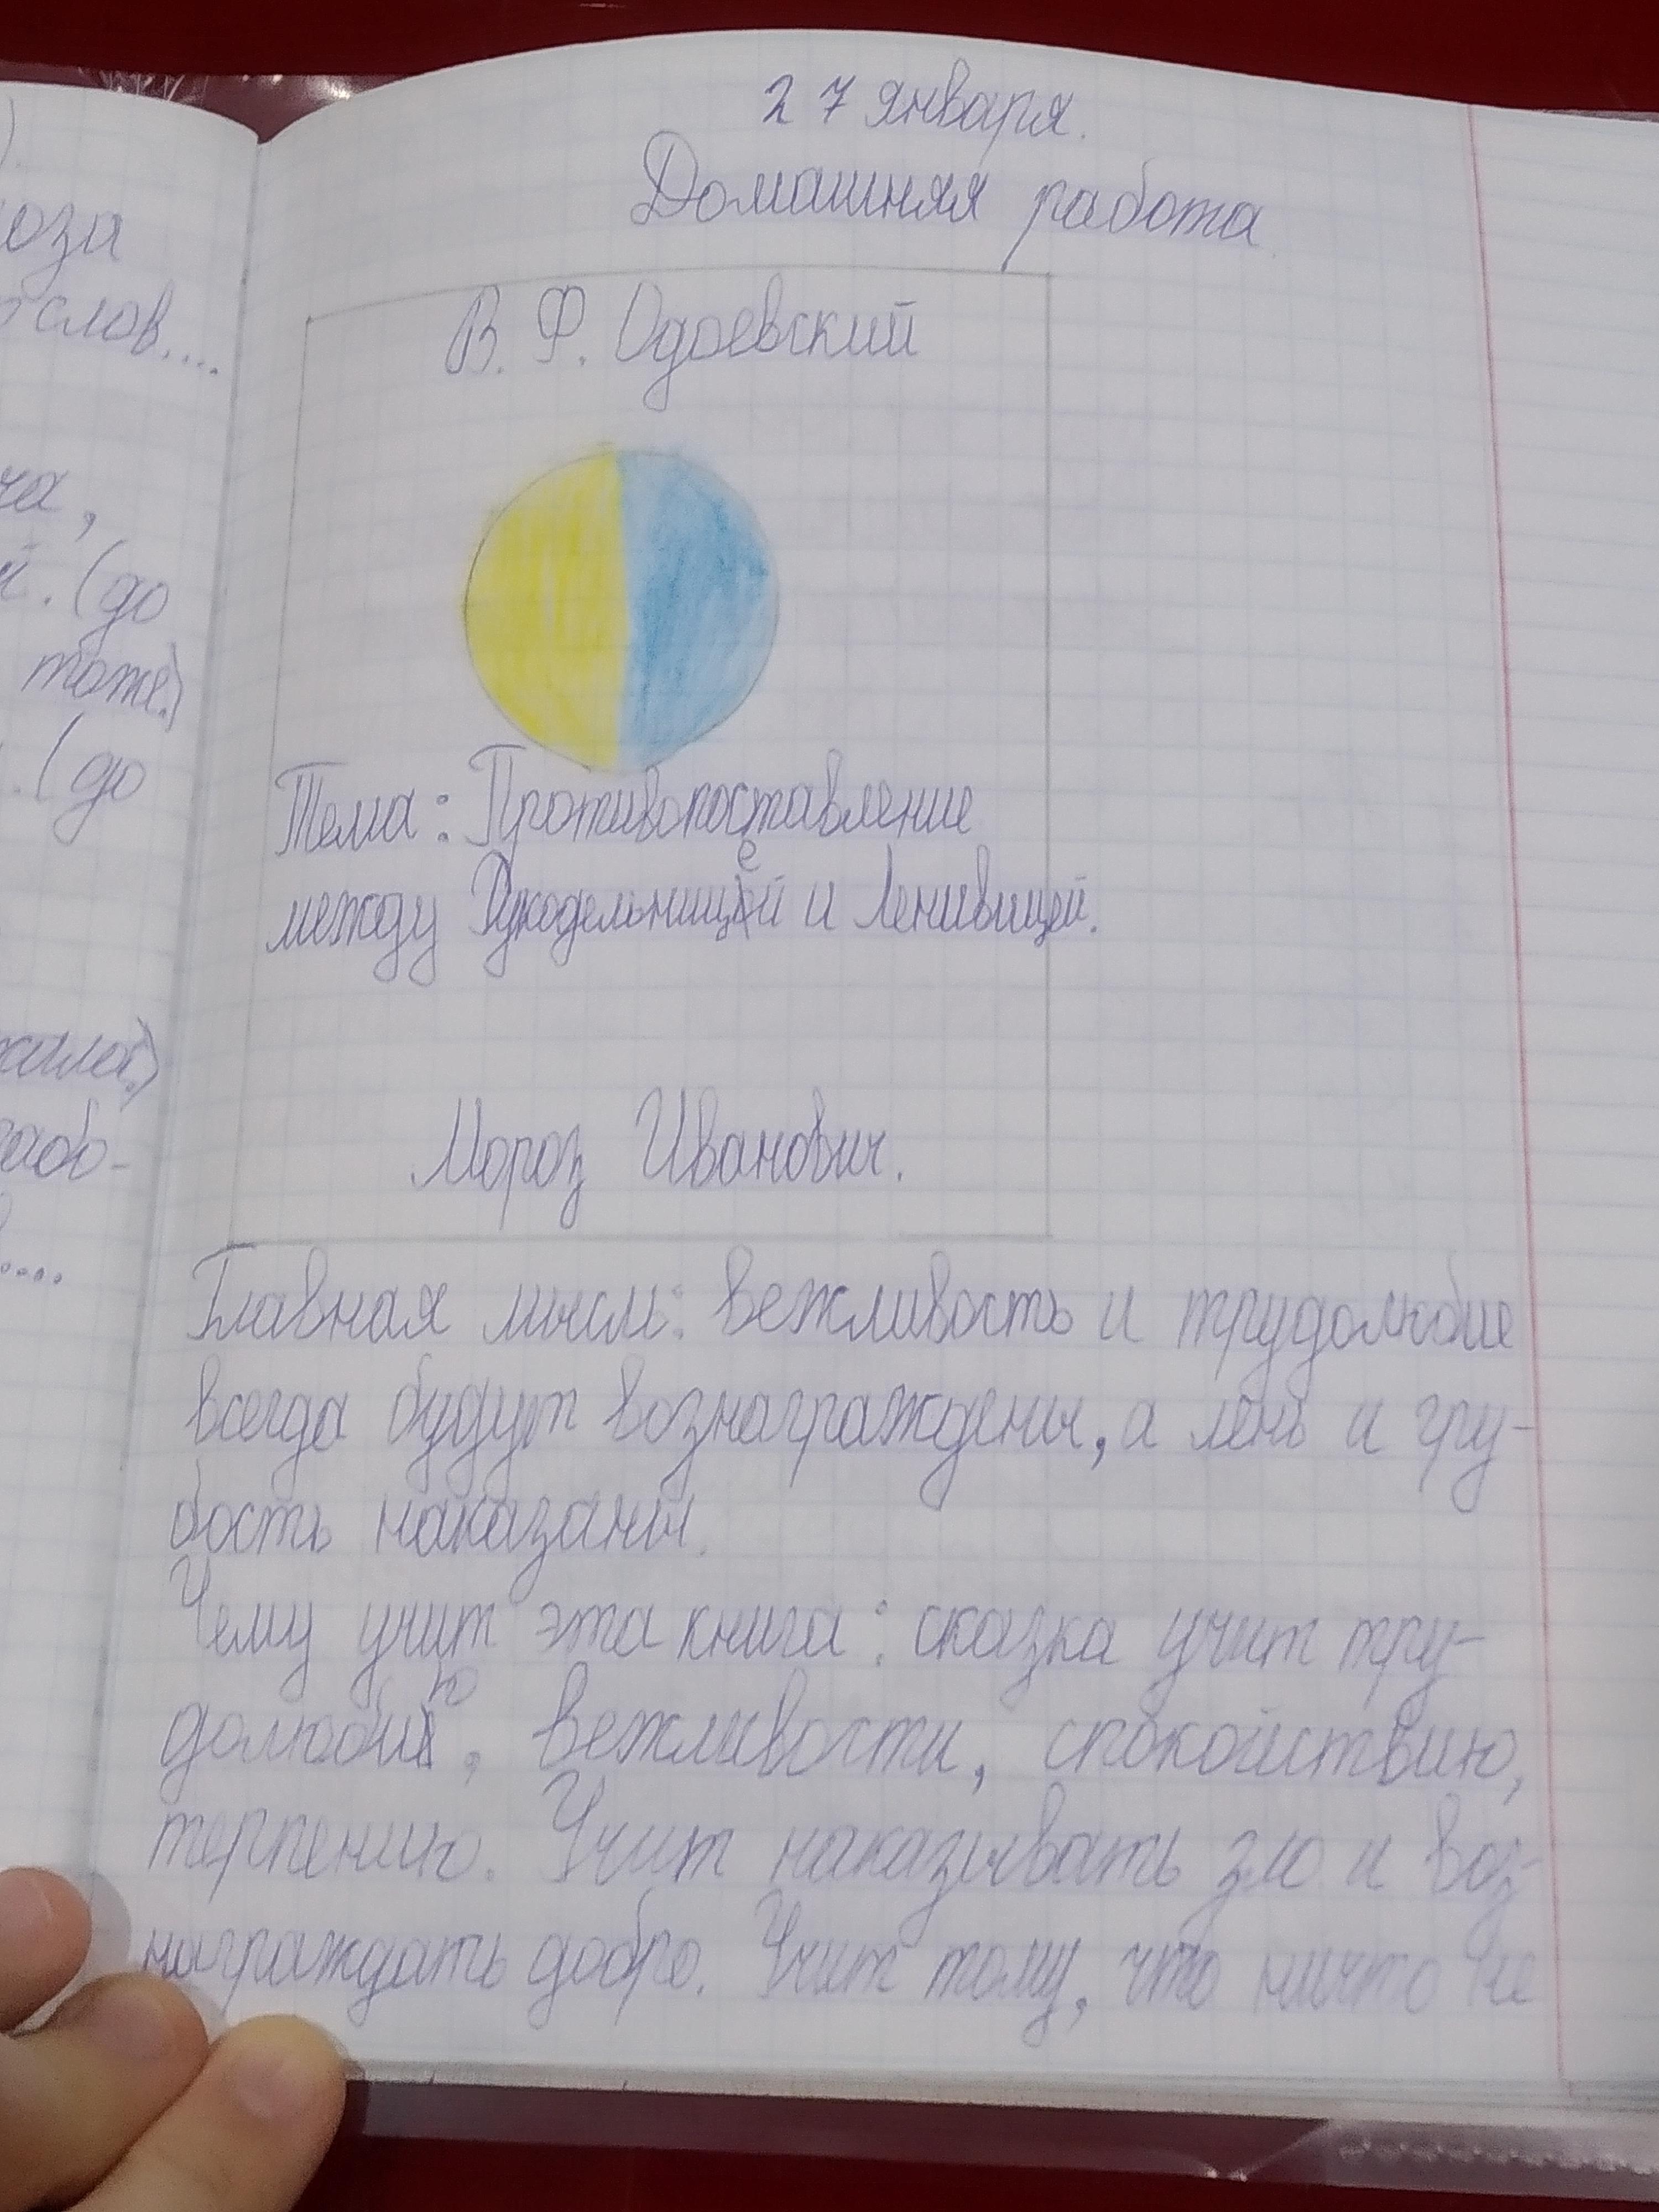 оза
слов....
ча,
й. (до
тоже)
. (до
27 января.
Домашняя работа
В. Ф. Одоевский
Тема: Противопоставление
между Рукодельницей и Ленивицей.
Мороз Иванович.
Главная мысль: вежливость и трудолюбие
всегда будут вознаграждены, а лень и гру-
бость наказаны.
Чему учит эта книга: сказка учит тру-
долюбию, вежливости, спокойствию,
терпению. Учит наказывать зло и воз-
награждать добро. Учит тому, что ничто не